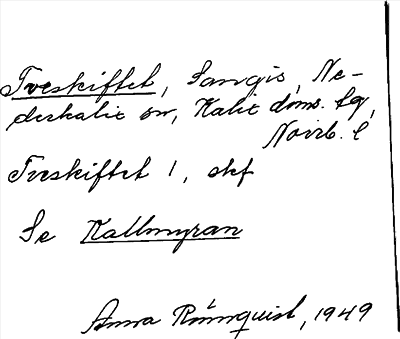 Treskiftet, Sangis, Ne-
derkalix sn, Kalix doms. tg,
Norrb. l
Treskiftet 1, skf
Se Kallmyran
Anna Rönnquist, 1949